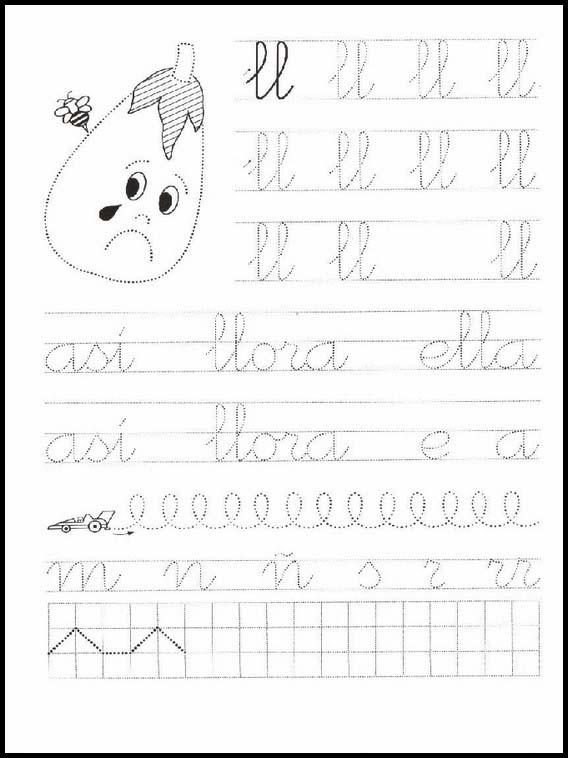 ll ll ll ll
ll ll ll ll
ll ll ll
así llora ella
así llora e a
m n ñ s r rr